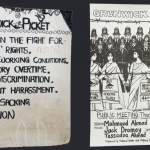 ICK PICKET
N THE FIGHT FOR
RIGHTS,
WORKING CONDITIONS,
ORY OVERTIME,
ISCRIMINATION.
T HARASSMENT.
SACKING
ION
GRUNWICK
PUBLIC MEETING
Mahmood Ahmad
Jack Dromey
Tassaduq Ahmed